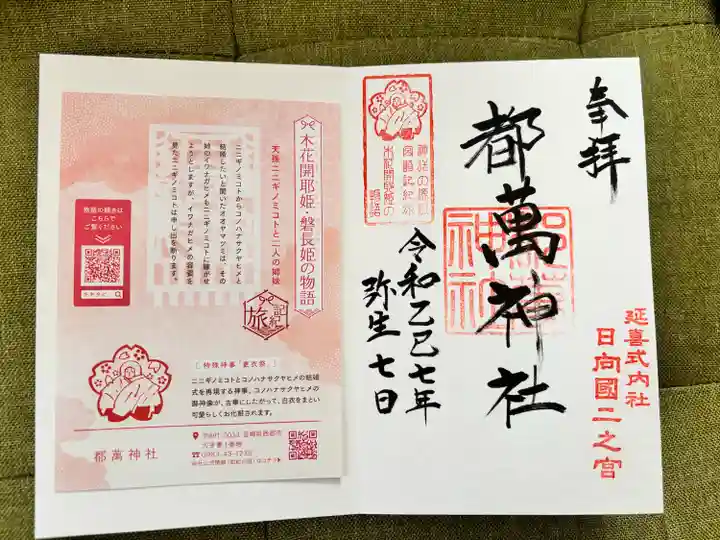 奉拝
都萬神社
延喜式内社
日向國二之宮
令和乙巳七年
弥生七日
神話の源流
宮崎記紀旅
木花開耶姫の
物語
木花開耶姫・磐長姫の物語
天孫ニニギノミコトと二人の姉妹
ニニギノミコトからコノハナサクヤヒメと
結婚したいと聞いたオオヤマツミは、その
姉のイワナガヒメもニニギノミコトに嫁がせ
ようとしますが、イワナガヒメの容姿を
見たニニギノミコトは申し出を断ります。
物語の続きは
こちらで
ご覧ください
記紀
旅
[ 特殊神事「更衣祭」 ]
ニニギノミコトとコノハナサクヤヒメの結婚
式を再現する神事。コノハナサクヤヒメの
御神像が、古事にしたがって、白衣をまとい
可愛らしくお化粧されます。
都萬神社
〒881-0033 宮崎県西都市
大字妻1番地
0983-43-1238